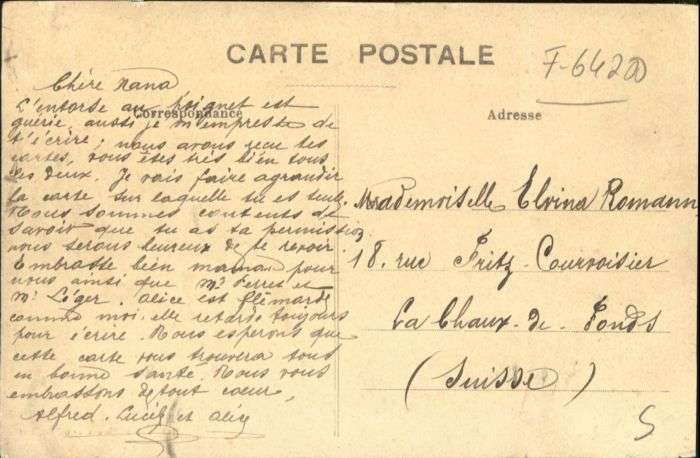 CARTE POSTALE
F-64200
Correspondance
Adresse
Chère Nana
L'entorse au poignet est
guérie, aussi je m'empresse de
t'écrire; nous avons reçu tes
cartes, vous êtes très bien tous
les deux. Je vais faire agrandir
la carte sur laquelle tu es seule.
Nous sommes contents de
savoir que tu as ta permission
nous serons heureux de te revoir
Embrasse bien maman pour
nous ainsi que Mr Perres et
Mr Léger. Alice est flémarde
comme moi. elle retarde toujours
pour écrire. Nous esperons que
cette carte vous trouvera tous
en bonne santé. Nous vous
embrassons de tout coeur,
Alfred. Lucie et Alice
Mademoiselle Elvina Romann
18, rue Fritz-Courvoisier
La Chaux-de-Fonds
(Suisse)
S